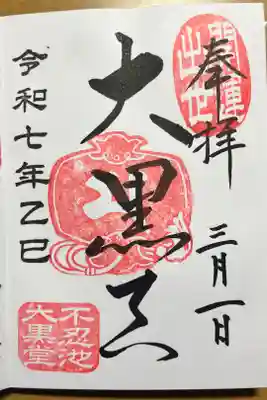 奉拝
三月一日
開運
出世
大黒天
令和七年乙巳
不忍池
大黒堂